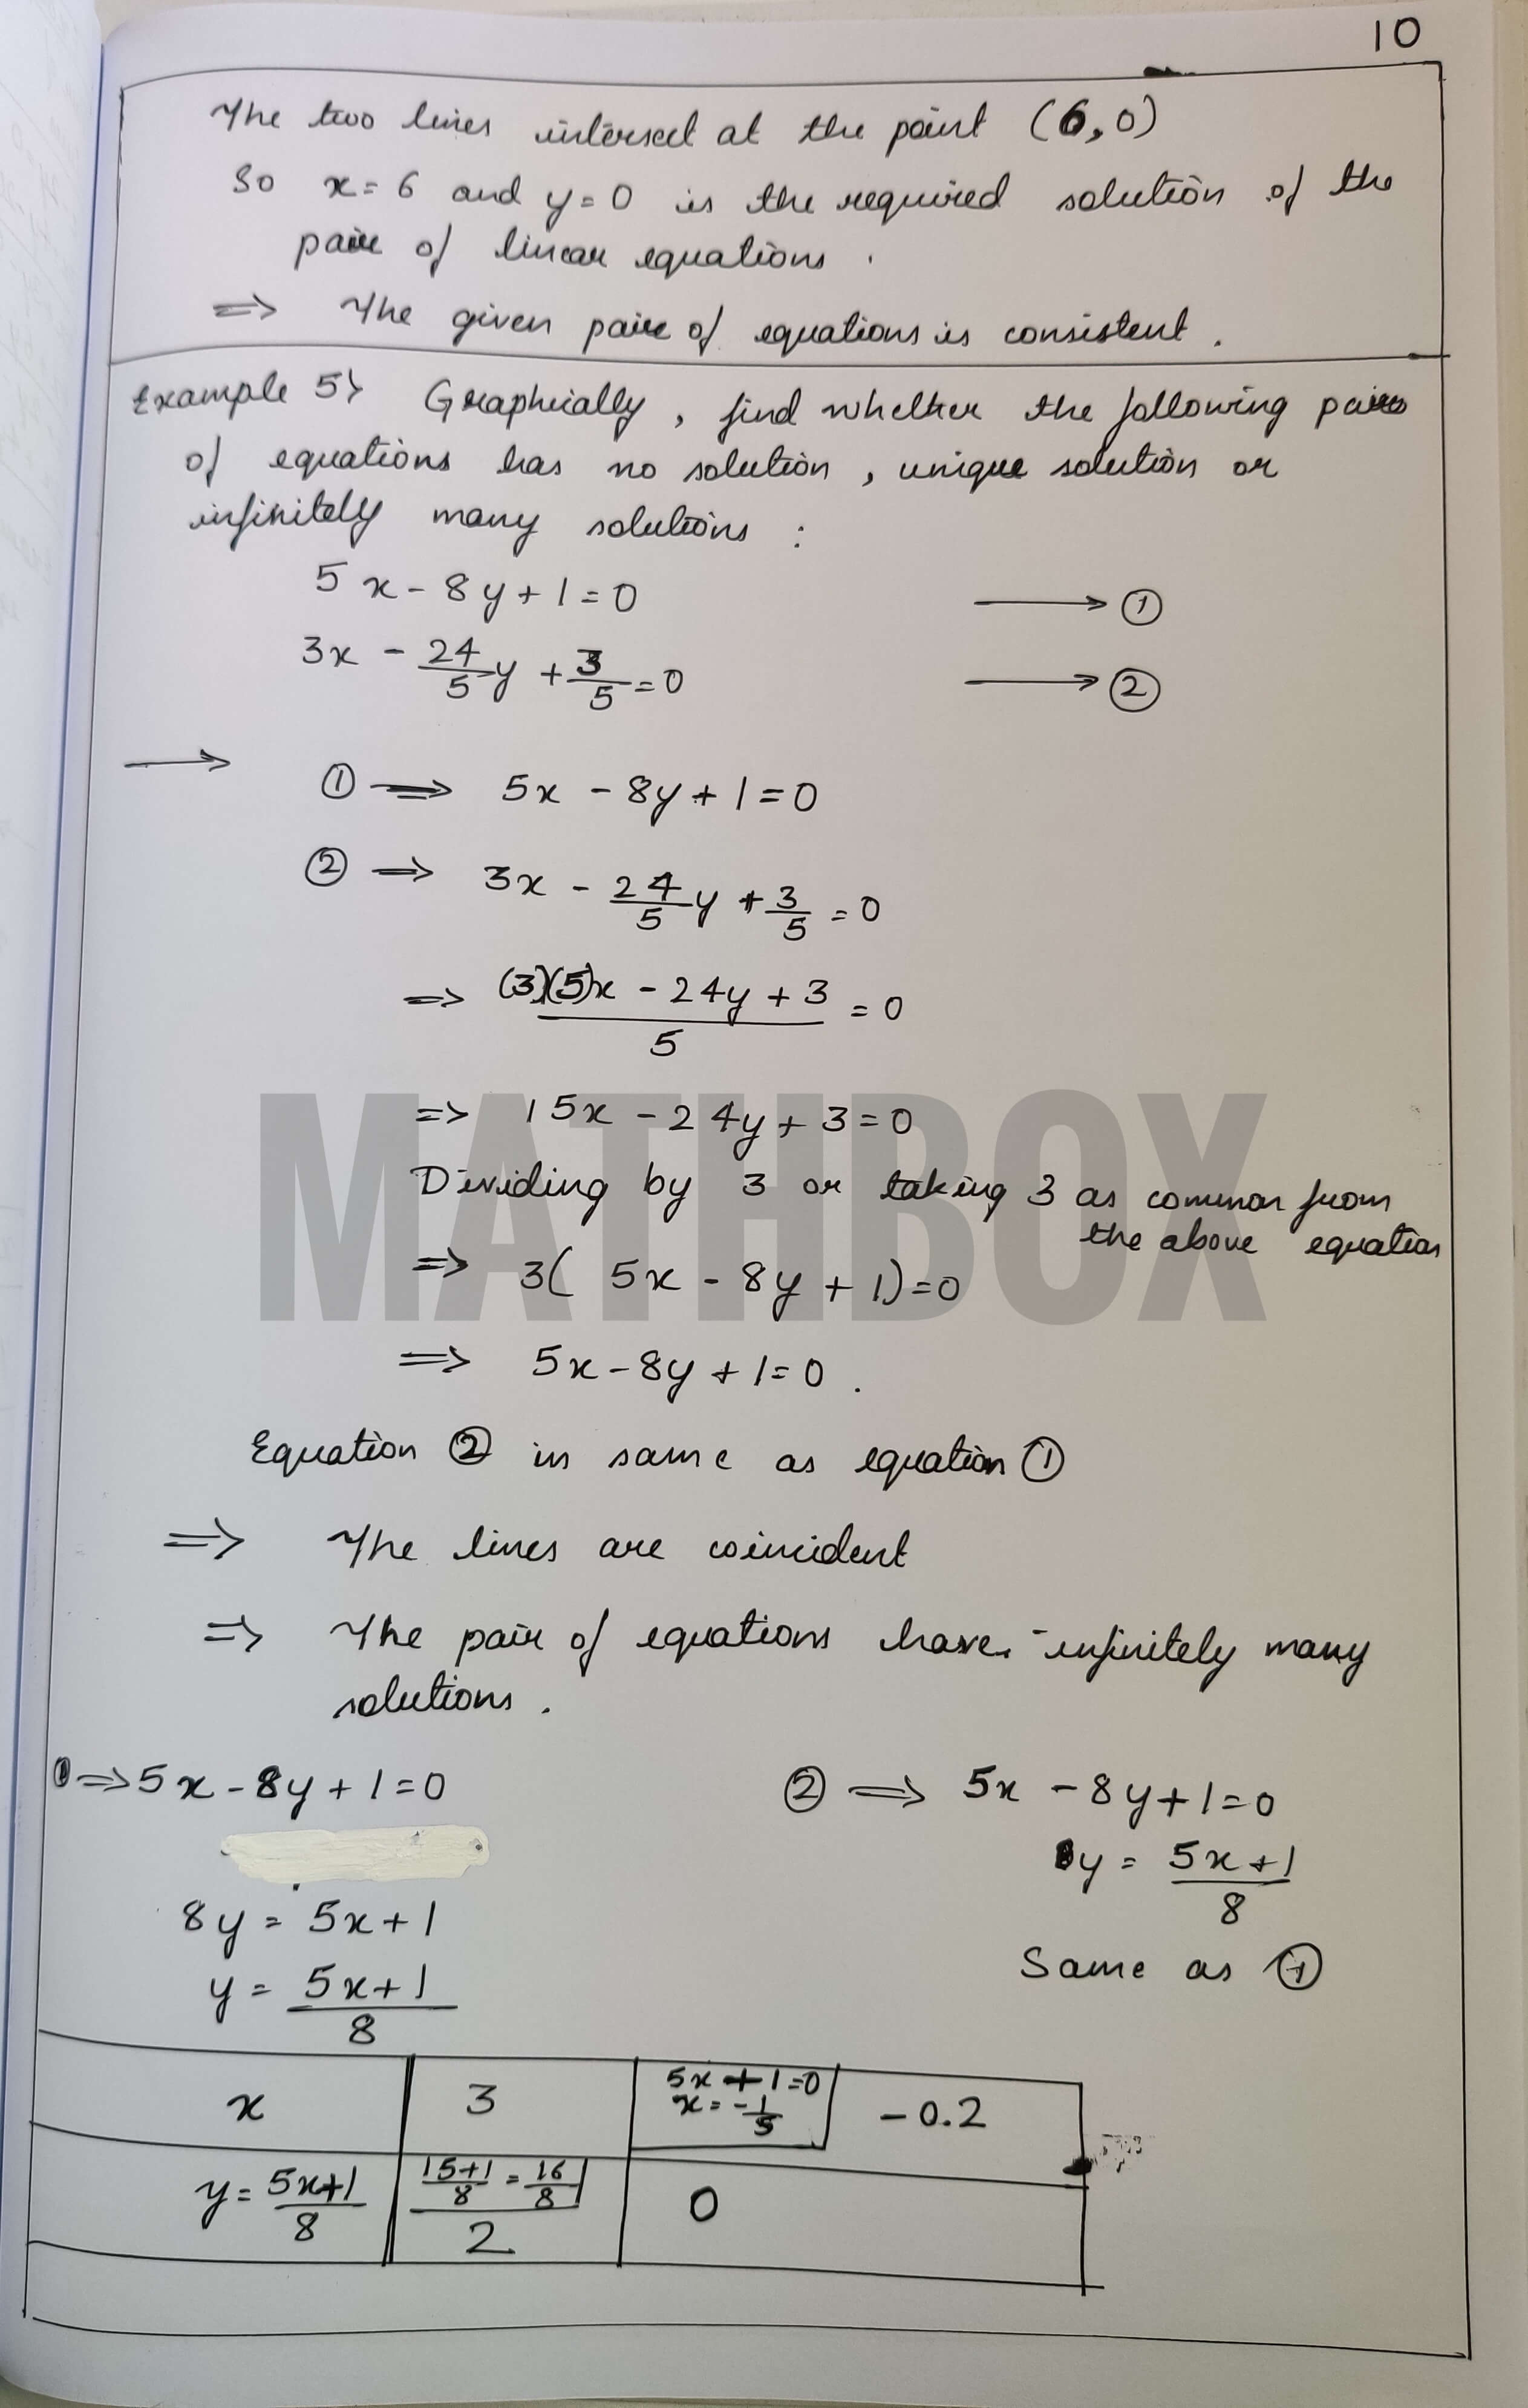 10
The two lines intersect at the point (6,0)
So x=6 and y=0 is the required solution of the
pair of linear equations.
=> The given pair of equations is consistent.
Example 5> Graphically, find whether the following pairs
of equations has no solution, unique solution or
infinitely many solutions :
5x - 8y + 1 = 0 → ①
3x - 24/5 y + 3/5 = 0 → ②
→ ① => 5x - 8y + 1 = 0
② => 3x - 24/5 y + 3/5 = 0
=> (3)(5)x - 24y + 3 / 5 = 0
=> 15x - 24y + 3 = 0
MATHBOX
Dividing by 3 or taking 3 as common from
the above equation
=> 3( 5x - 8y + 1) = 0
=> 5x - 8y + 1 = 0 .
Equation ② is same as equation ①
=> The lines are coincident
=> The pair of equations have infinitely many
solutions .
① => 5x - 8y + 1 = 0
8y = 5x + 1
y = 5x + 1 / 8
② => 5x - 8y + 1 = 0
y = 5x + 1 / 8
Same as ①
x 3 5x + 1 = 0 x = -1/5 -0.2
y = 5x+1 / 8 15+1 / 8 = 16 / 8 2 0